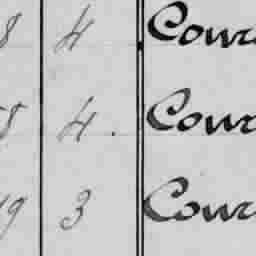 8 4 Cour
8 4. Cour
19 3 Cour